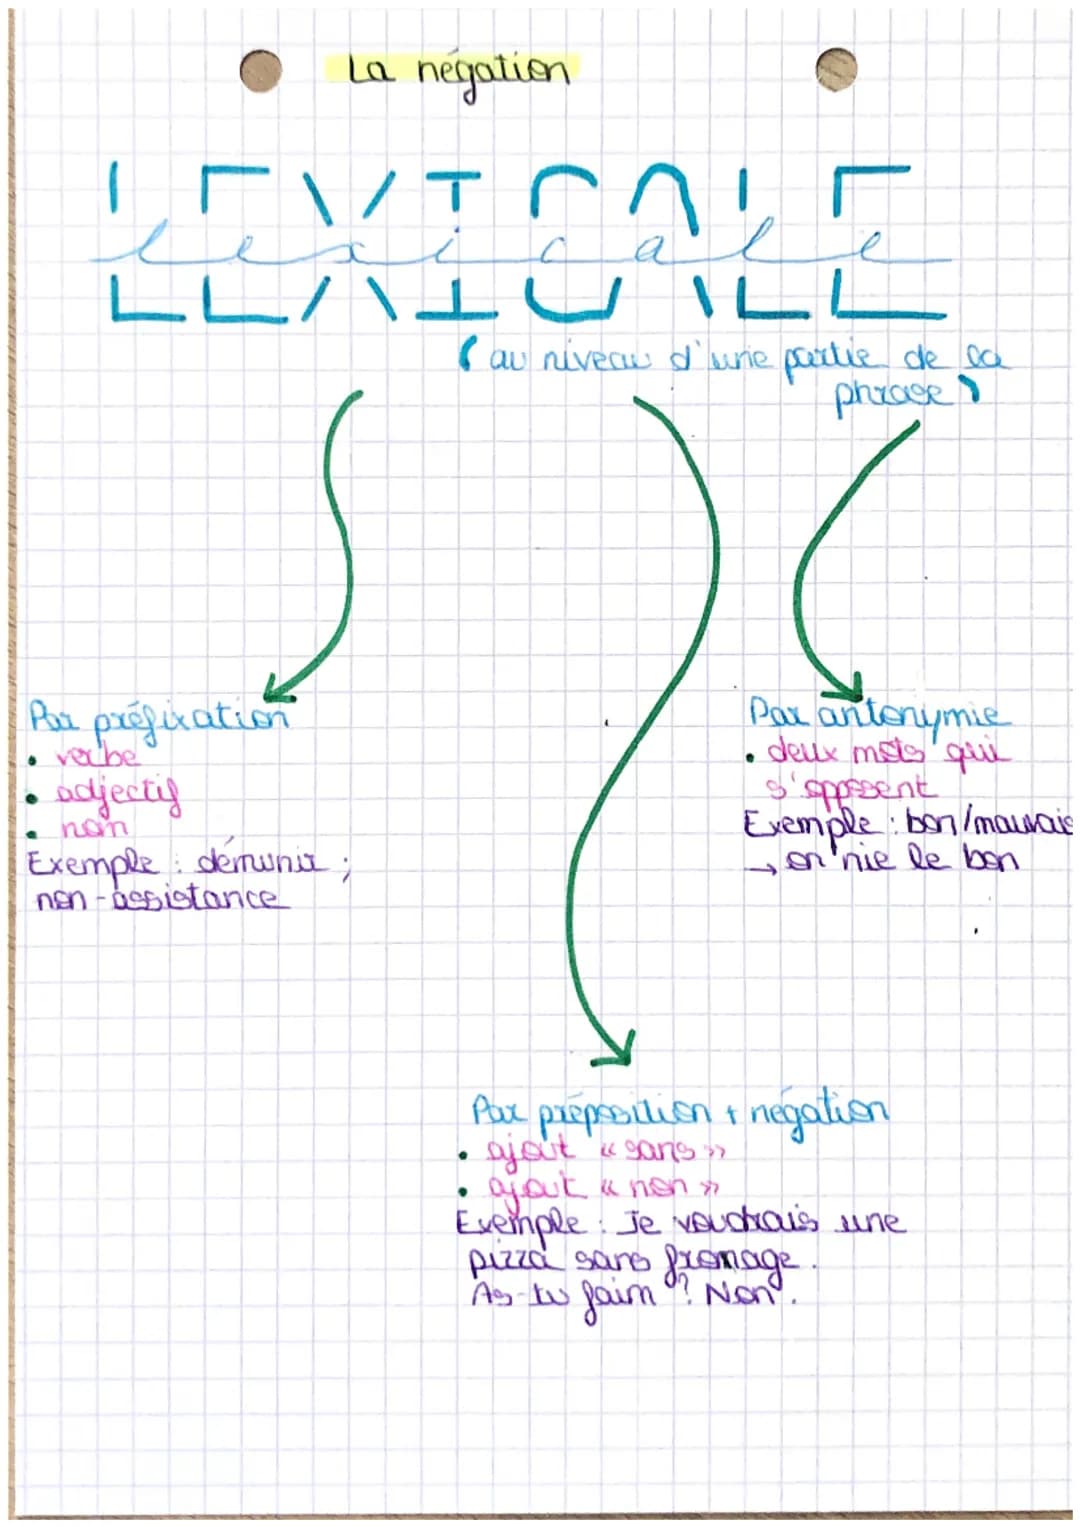 La négation
LEXICALE
lexicale
(au niveau d'une partie de la
phrase)
Par préfixation
• verbe
• adjectif
• nom
Exemple : démunir ;
non-assistance
Par antonymie
• deux mots qui
s'opposent
Exemple : bon/mauvais
→ on nie le bon
Par préposition + négation
• ajout « sans »
• ajout « non »
Exemple : Je voudrais une
pizza sans fromage.
As-tu faim ? Non.